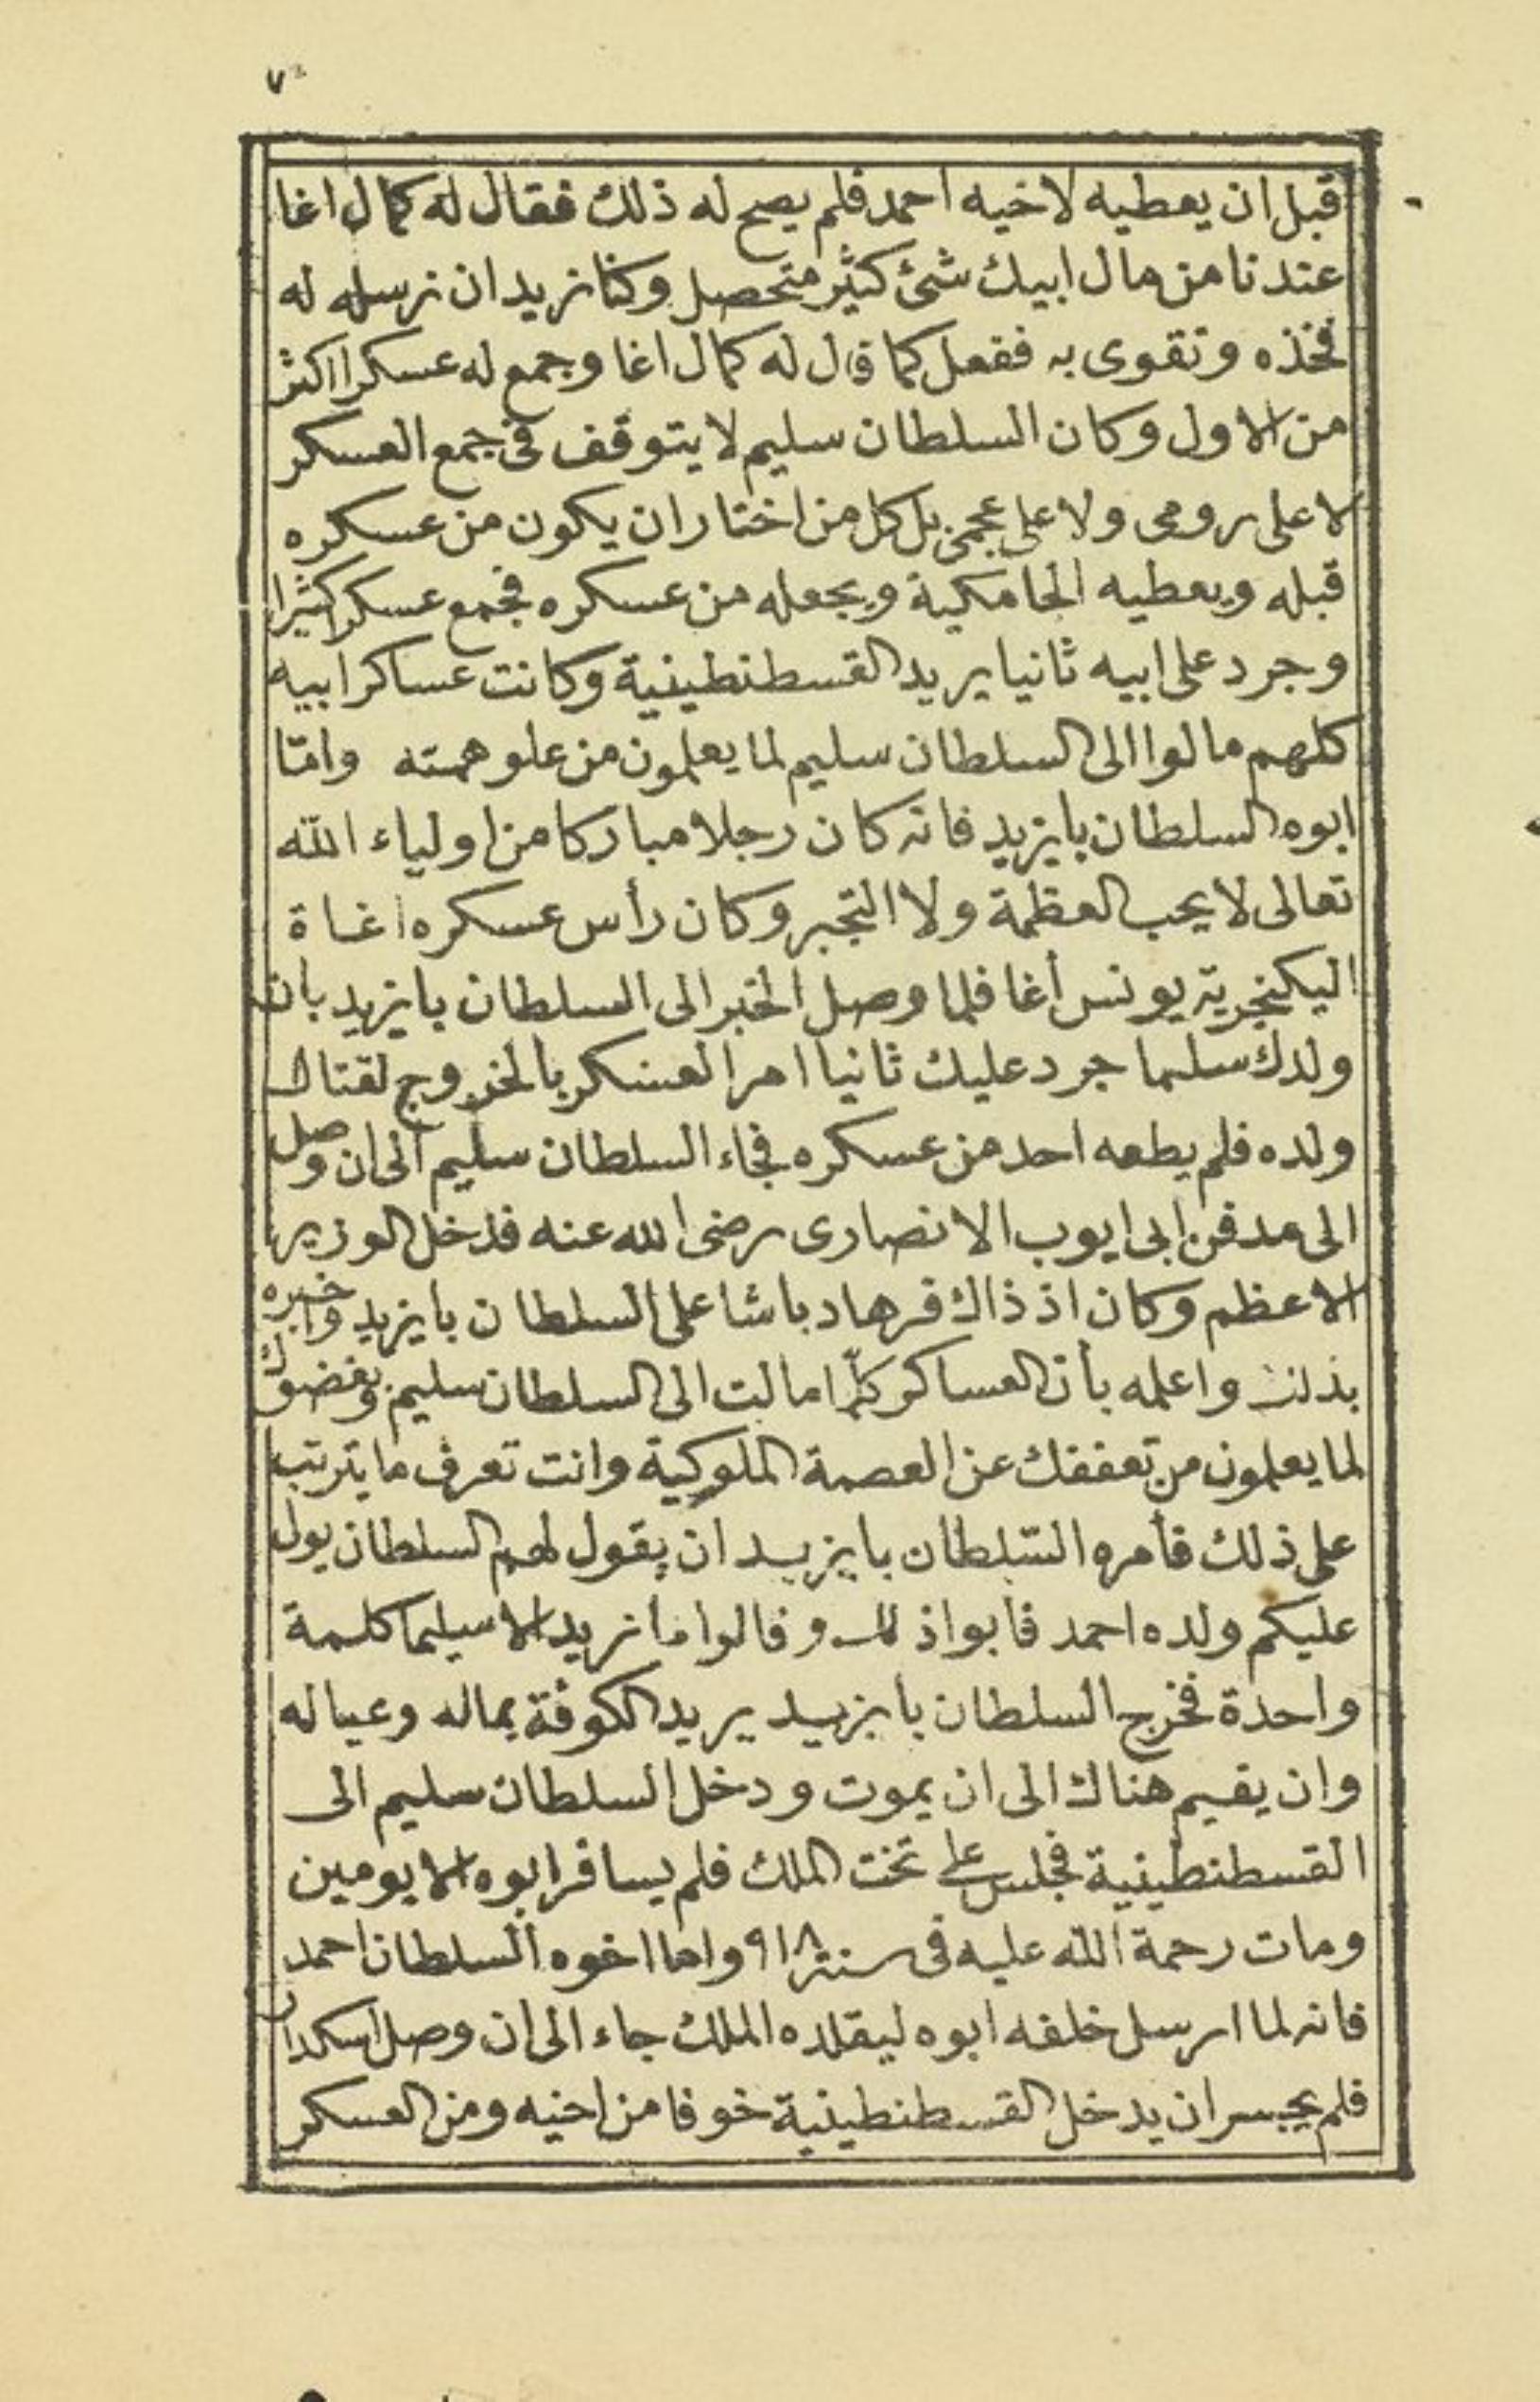 ٧
قبل ان يعطيه لاخيه احمد فلم يصح له ذلك فقال له كمال اغا
عندنا من مال ابيك شئ كثير متحصل وكنا نريد ان نرسله له
فخذه وتقوى به ففعل كما قال له كمال اغا وجمع له عسكرا اكثر
من الاول وكان السلطان سليم لا يتوقف في جمع العسكر
لا على رومى ولا على عجمى بل كل من اختار ان يكون من عسكره
قبله ويعطيه الجامكية ويجعله من عسكره فجمع عسكرا كثيرا
وجرد على ابيه ثانيا يريد القسطنطينية وكانت عساكر ابيه
كلهم مالوا الى السلطان سليم لما يعلمون من علو همته وامّا
ابوه السلطان بايزيد فانه كان رجلا مباركا من اولياء الله
تعالى لا يحب العظمة ولا التجبر وكان رأس عسكره اغاة
اليكنجرية يونس أغا فلما وصل الخبر الى السلطان بايزيد بان
ولدك سليما جرد عليك ثانيا امر العسكر بالخروج لقتال
ولده فلم يطعه احد من عسكره فجاء السلطان سليم الى ان وصل
الى مدفن ابى ايوب الانصارى رضى الله عنه فدخل الوزير
الاعظم وكان اذ ذاك فرهاد باشا على السلطان بايزيد واخبره
بذلك واعلمه بأن العساكر كلّها مالت الى السلطان سليم وبغضوك
لما يعلمون من تعففك عن العصمة الملوكية وانت تعرف ما يترتب
على ذلك فأمره السّلطان بايزيد ان يقول لهم السلطان يول
عليكم ولده احمد فابوا ذلك وقالوا ما نريد الا سليما كلمة
واحدة فخرج السلطان بايزيد يريد الكوفة بماله وعياله
وان يقيم هناك الى ان يموت ودخل السلطان سليم الى
القسطنطينية فجلس على تخت الملك فلم يسافر ابوه الا يومين
ومات رحمة الله عليه فى سنة ٩١٨ واما اخوه السلطان احمد
فانه لما ارسل خلفه ابوه ليقلده الملك جاء الى ان وصل اسكدار
فلم يجسر ان يدخل القسطنطينية خوفا من اخيه ومن العسكر